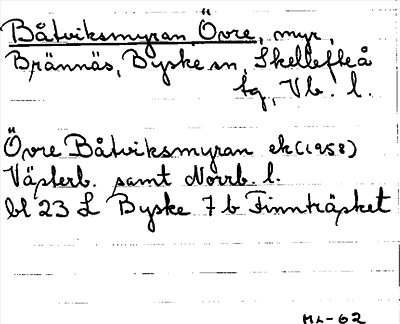 Båtviksmyran Övre, myr,
Brännäs, Byske sn, Skellefteå
tg, Vb. l.
Övre Båtviksmyran ek (1958)
Västerb. samt Norrb. l.
bl 23 L Byske 7 b Finnträsket
ML-62